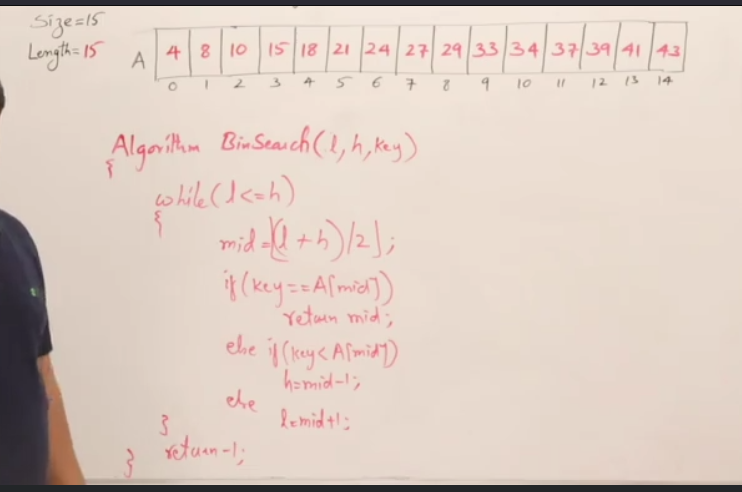 Size=15
Length=15
A 4 8 10 15 18 21 24 27 29 33 34 37 39 41 43
0 1 2 3 4 5 6 7 8 9 10 11 12 13 14
Algorithm BinSearch(l, h, key)
{
while(l<=h)
{
mid=⌊(l+h)/2⌋;
if(key==A[mid])
return mid;
else if(key<A[mid])
h=mid-1;
else
l=mid+1;
}
return-1;
}